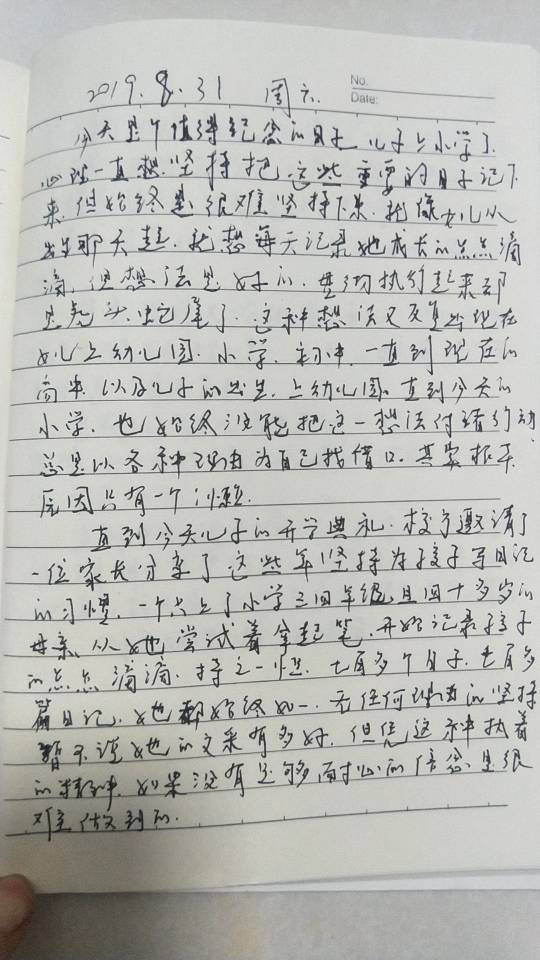 No.
Date:
2019.8.31 周六
今天是个值得纪念的日子,儿子上小学了.
心里一直想坚持把这些重要的日子记下
来.但始终是很难坚持下来.就像女儿从
出生那天起.就想每天记录她成长的点点滴
滴,但想法是好的.真的执行起来却
是虎头蛇尾了.这种想法又反复出现在
女儿上幼儿园.小学.初中.一直到现在的
高中.以及儿子的出生.上幼儿园.直到今天的
小学.也始终没能把这一想法付诸行动.
总是以各种理由为自己找借口.其实根本
原因只有一个:懒.
直到今天儿子的开学典礼.校方邀请了
一位家长分享了这些年坚持为孩子写日记
的习惯.一个只上了小学三四年级且四十多岁的
母亲.从她尝试着拿起笔.开始记录孩子
的点点滴滴.持之一恒.七百多个日子.七百多
篇日记.她都始终如一.无任何理由的坚持
暂不说她的文采有多好.但凭这种执着
的精神.如果没有足够耐心的信念是很
难做到的.